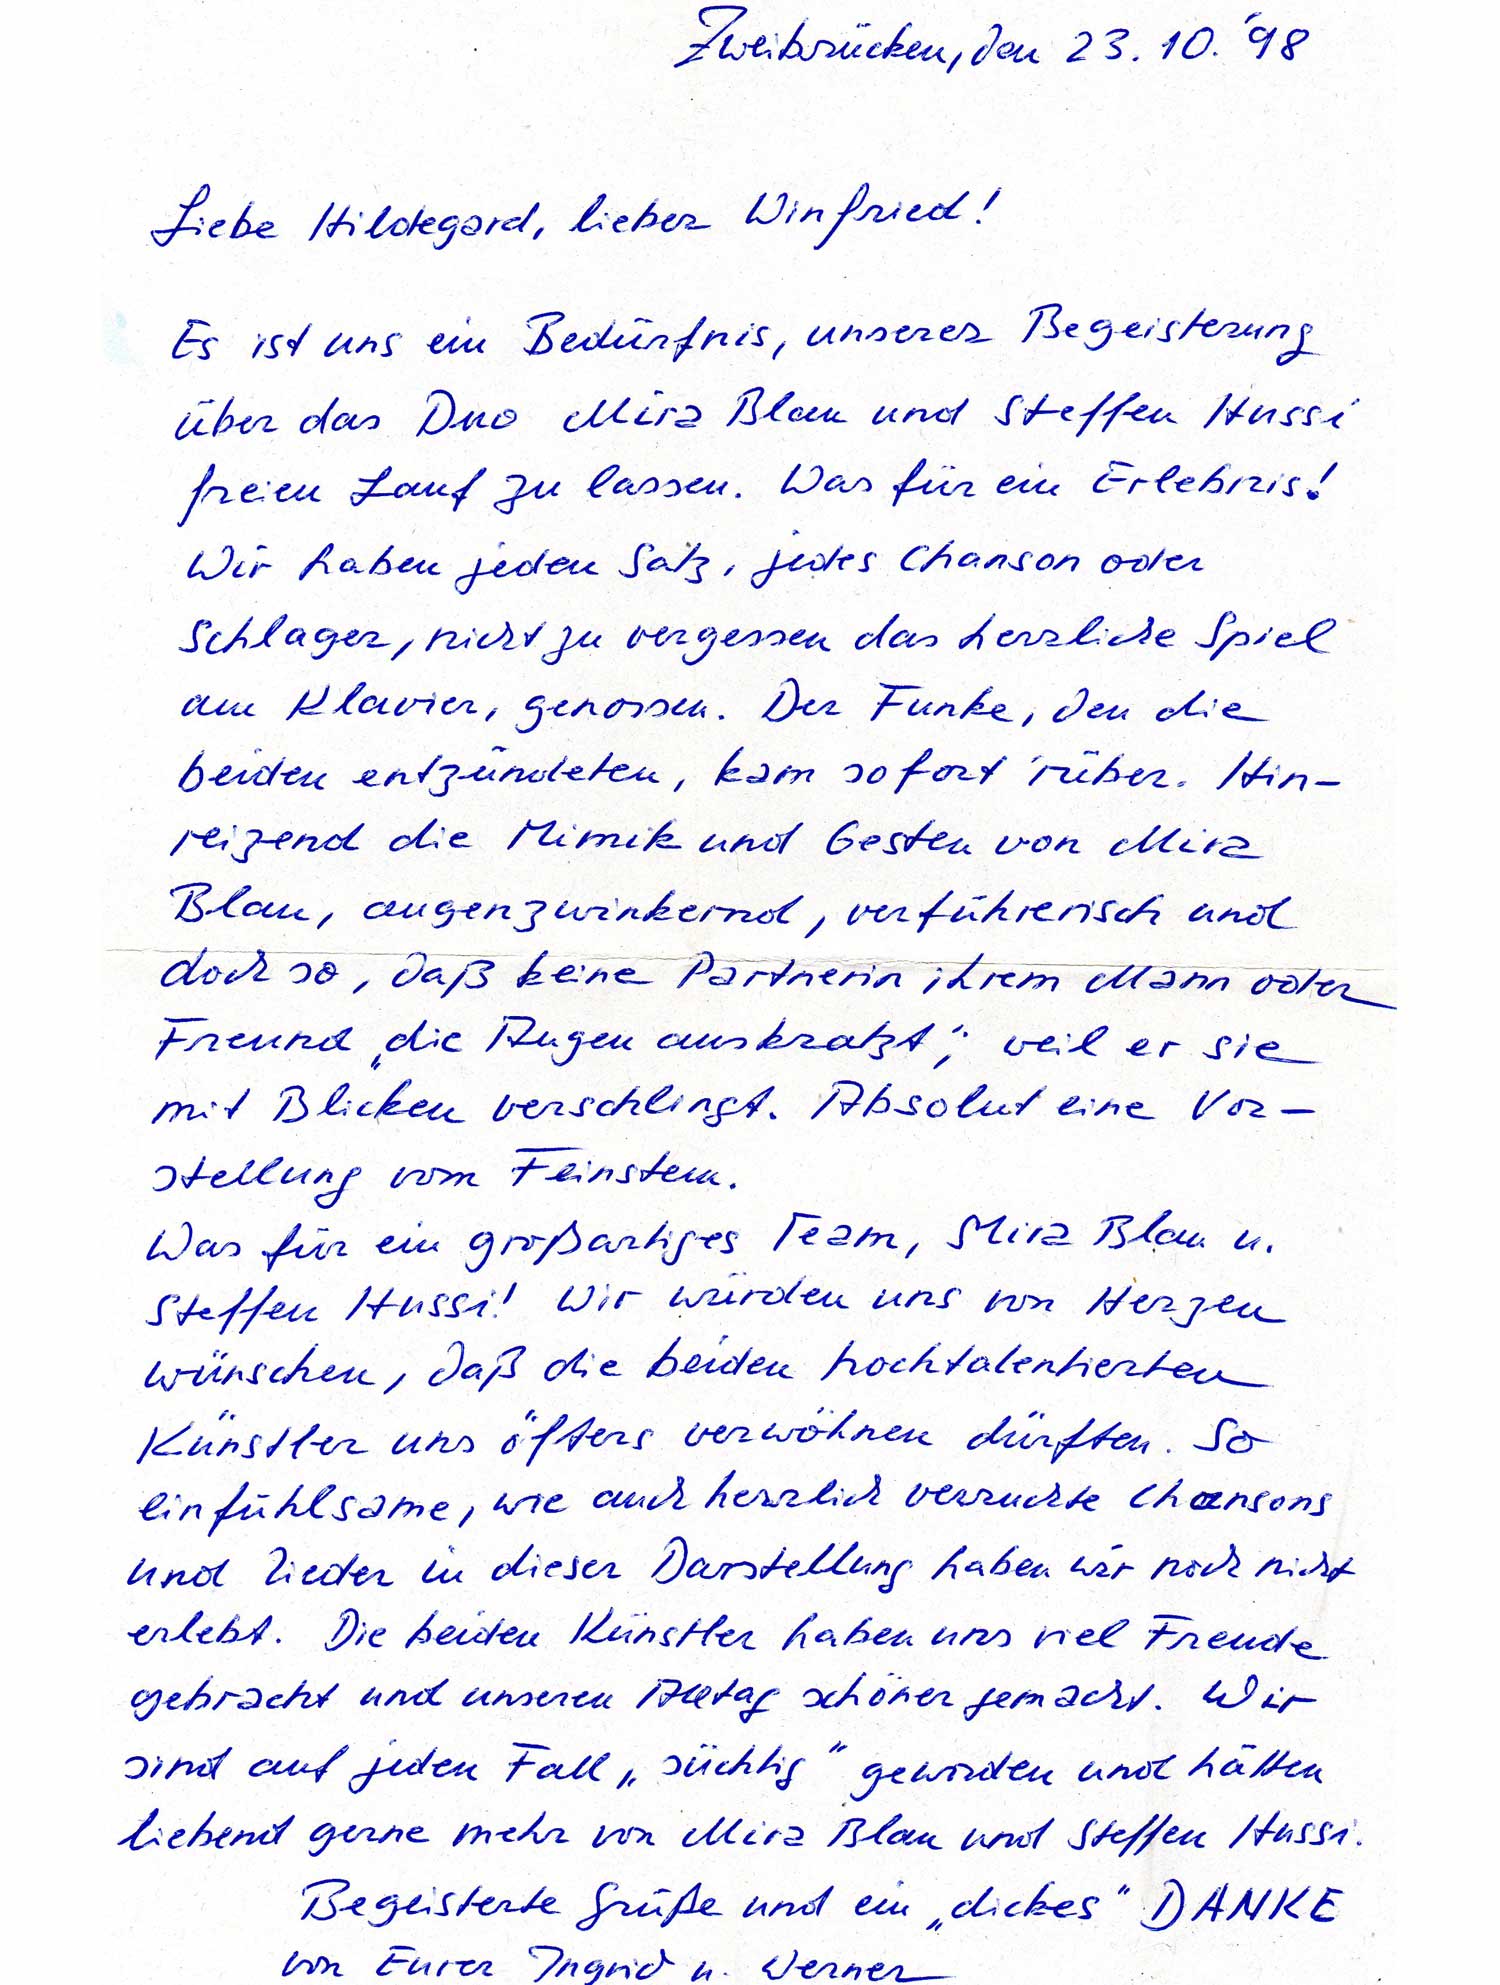 Zweibrücken, den 23. 10. '98
Liebe Hildegard, lieber Winfried!
Es ist uns ein Bedürfnis, unserer Begeisterung
über das Duo Mira Blau und Steffen Hussi
freien Lauf zu lassen. Was für ein Erlebnis!
Wir haben jeden Satz, jedes Chanson oder
Schlager, nicht zu vergessen das herrliche Spiel
am Klavier, genossen. Der Funke, den die
beiden entzündeten, kam sofort 'rüber. Hin-
reizend die Mimik und Gesten von Mira
Blau, augenzwinkernd, verführerisch und
doch so, daß keine Partnerin ihrem Mann oder
Freund „die Augen auskratzt", weil er sie
mit Blicken verschlingt. Absolut eine Vor-
stellung vom Feinsten.
Was für ein großartiges Team, Mira Blau u.
Steffen Hussi! Wir würden uns von Herzen
wünschen, daß die beiden hochtalentierten
Künstler uns öfters verwöhnen dürften. So
einfühlsame, wie auch herrlich verruchte Chansons
und Lieder in dieser Darstellung haben wir noch nicht
erlebt. Die beiden Künstler haben uns viel Freude
gebracht und unseren Alltag schöner gemacht. Wir
sind auf jeden Fall „süchtig" geworden und hätten
liebend gerne mehr von Mira Blau und Steffen Hussi.
Begeisterte Grüße und ein „dickes" DANKE
von Eurer Ingrid u. Werner